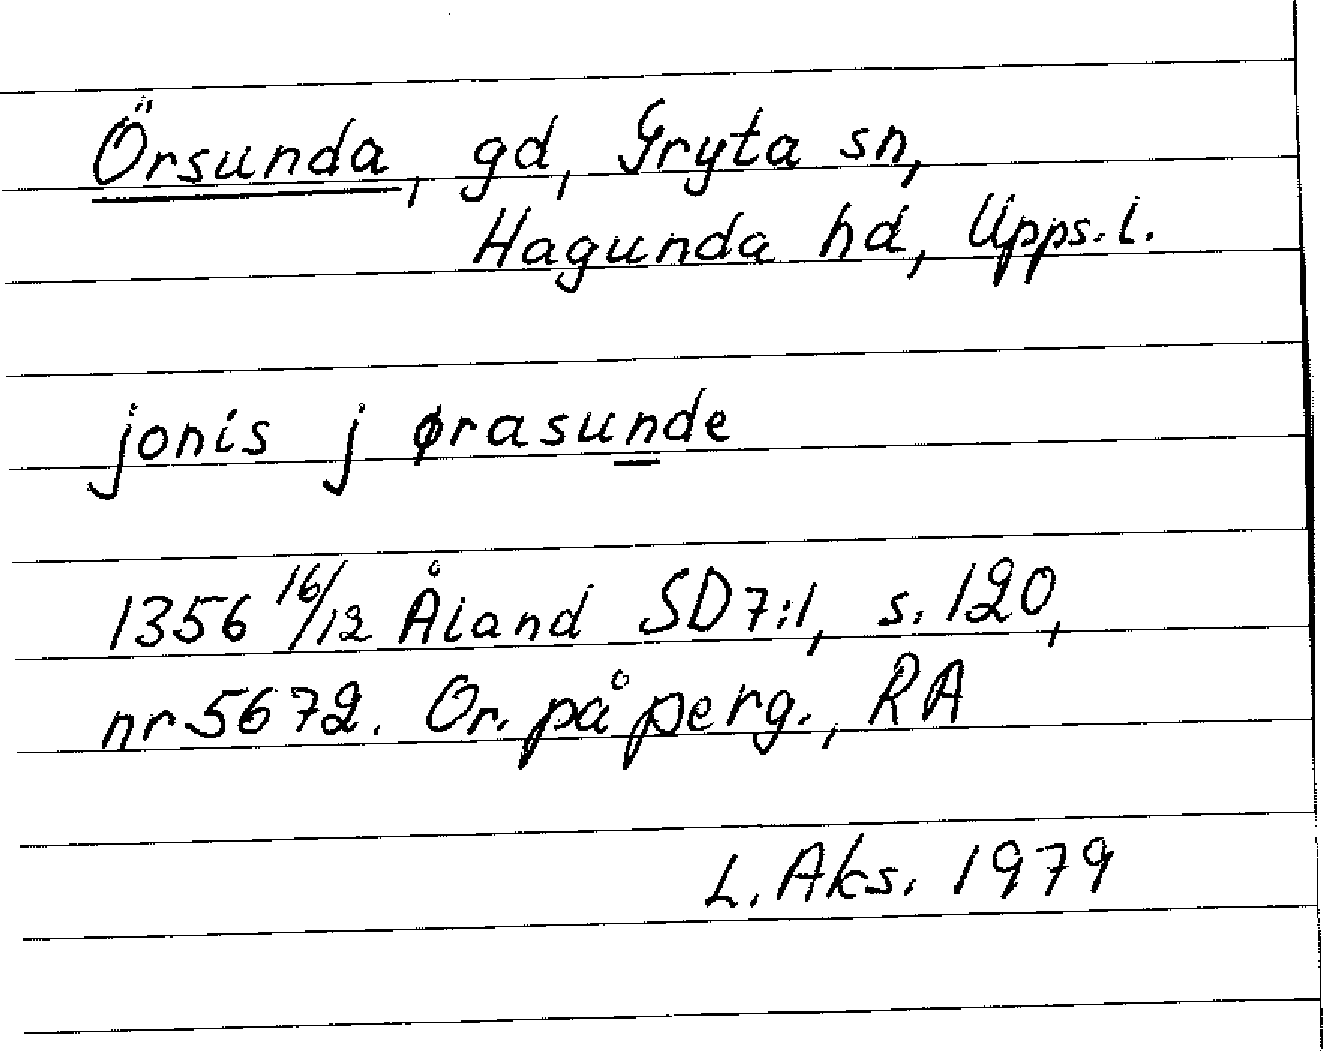 Örsunda, gd, Gryta sn,
Hagunda hd, Upps. l.
jonis j ørasunde
1356 16/12 Åland SD 7:1, s. 120,
nr 5672. Or. på perg., RA
L. Aks. 1979